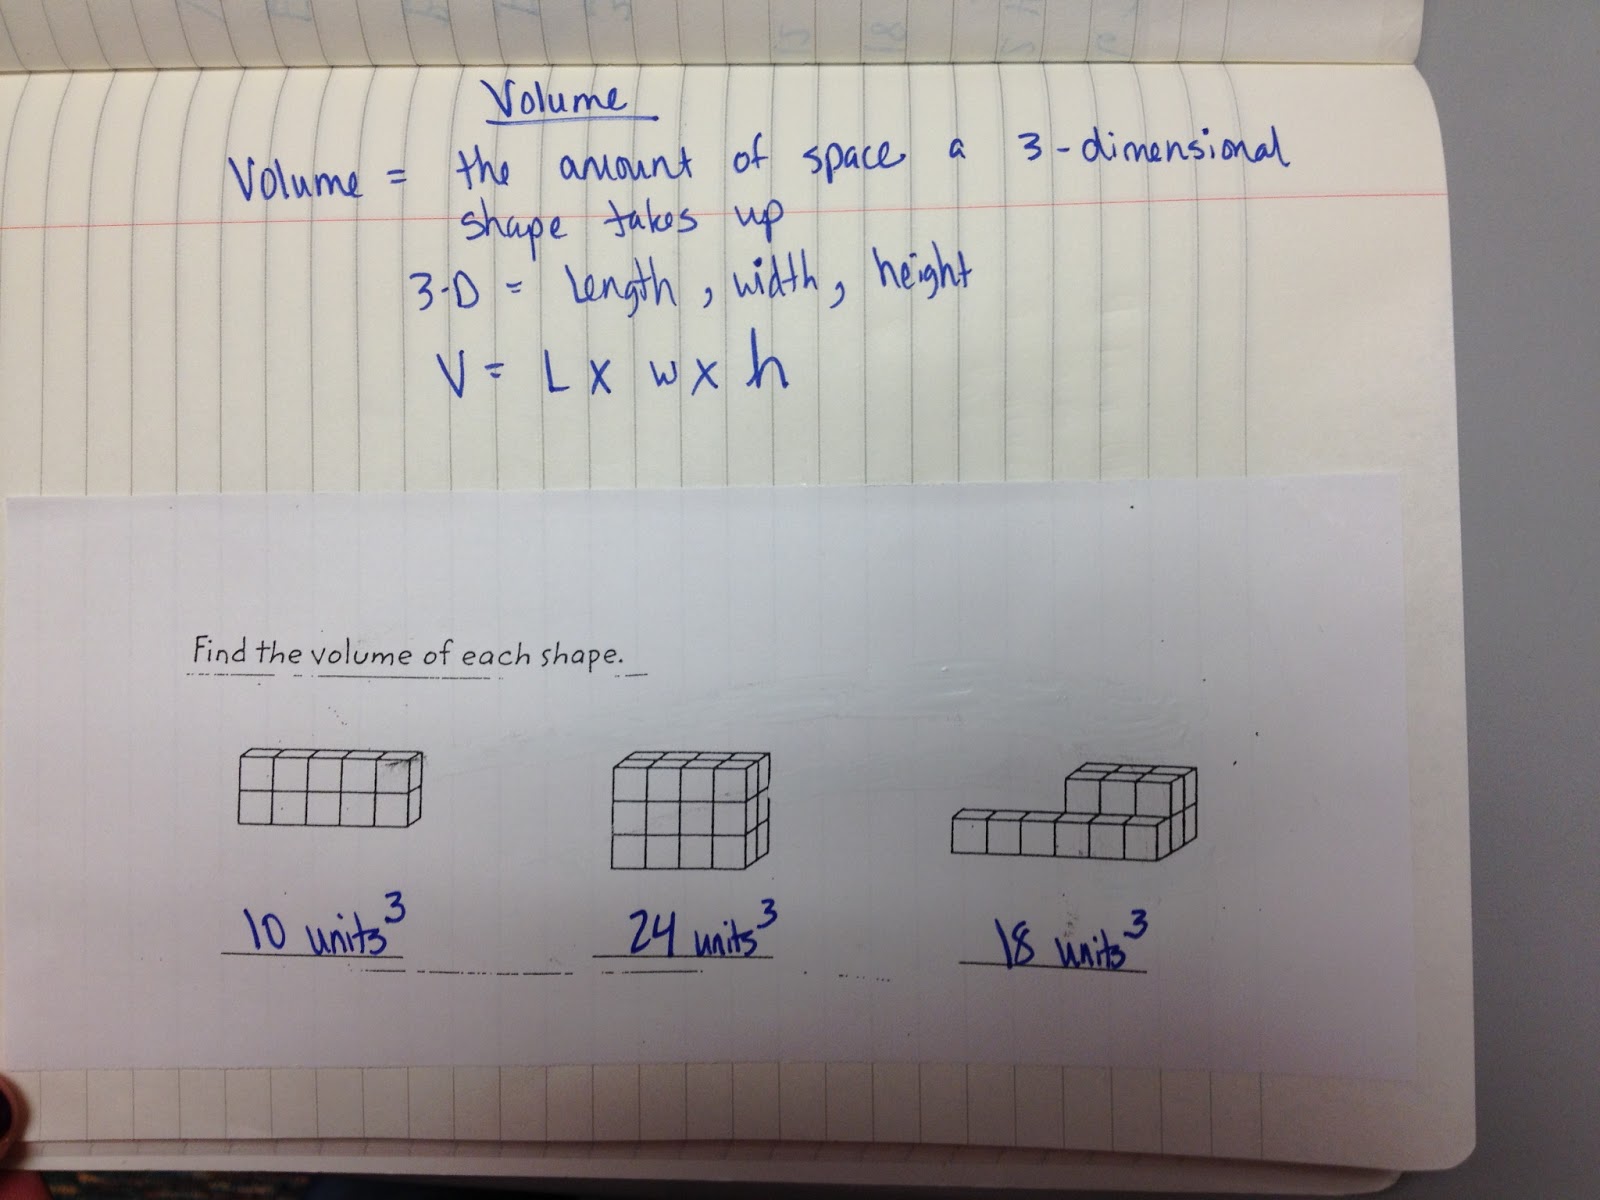 Volume
Volume = the amount of space a 3-dimensional
shape takes up
3-D = Length, width, height
V = L x w x h
Find the volume of each shape.
10 units³ 24 units³ 18 units³